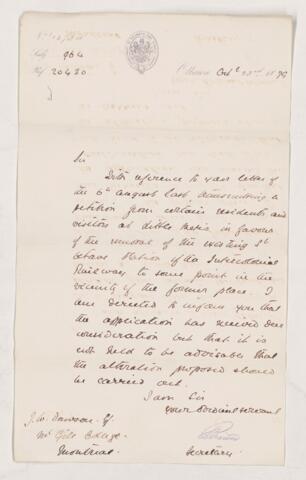 964
20420
Ottawa Oct 23rd 1879
Sir
With reference to your letter of
the 6th August last transmitting a
petition from certain residents and
visitors at Little Metis in favour
of the removal of the existing St
Octave Station of the Intercolonial
Railway to some point in the
vicinity of the former place. I
am directed to inform you that
the application has received due
consideration but that it is
not held to be advisable that
the alteration proposed should
be carried out.
I am Sir
your obedient servant
Secretary.
J. W. Dawson Esq
McGill College
Montreal